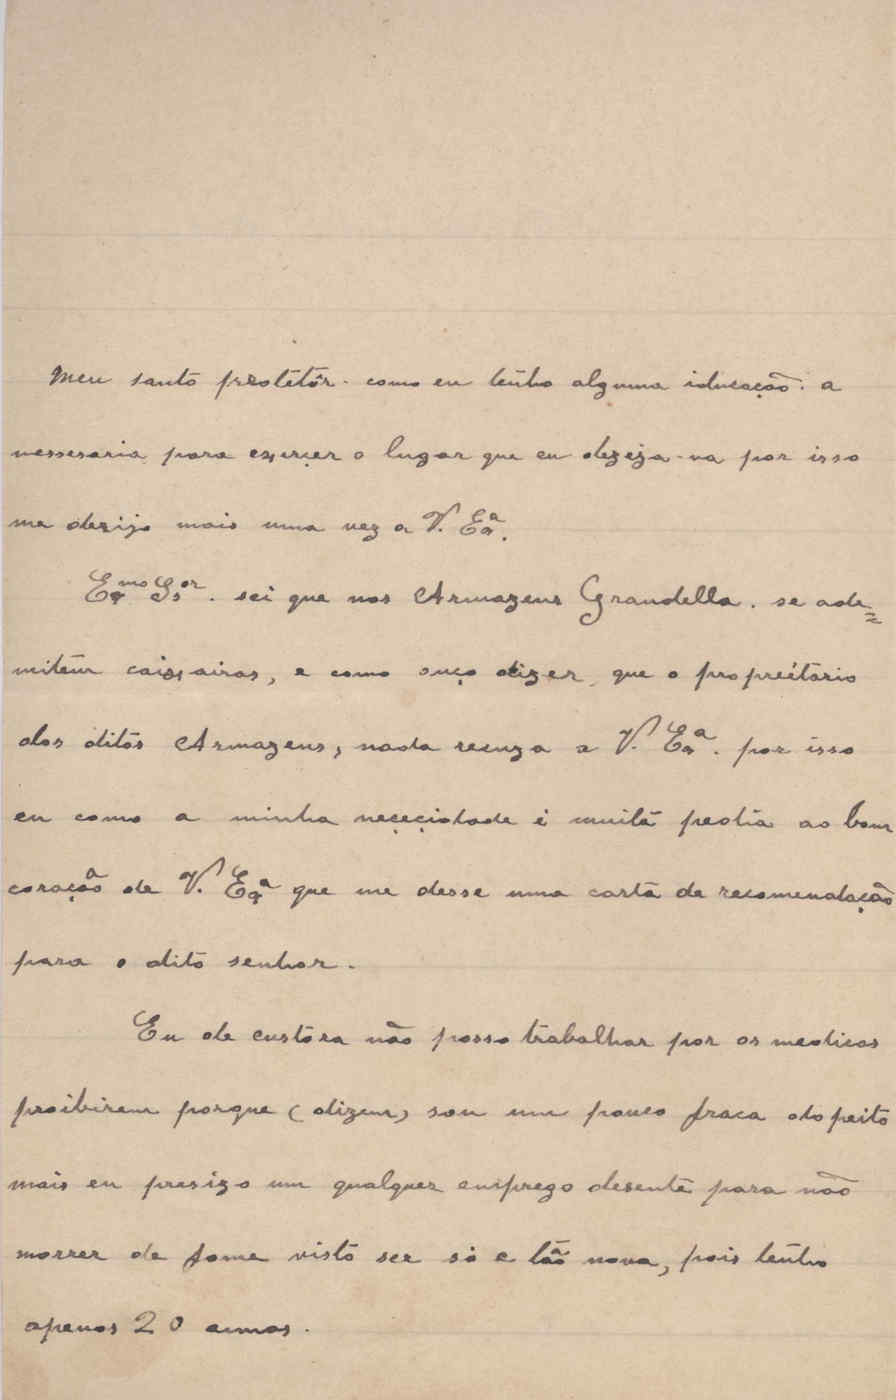 Meu santo protetôr. como eu tenho alguma iducação. a
nessesaria para exerçer o lugar que eu dezeja-va por isso
me derijo mais uma vez a V. Exª.
Exmo Snr. sei que nos Armazens Grandella. se ade=
mitem caixairas, e como ouço dizer, que o propriétario
dos ditos Armazens, nada recuza a V. Exª. por isso
eu como a minha neçeçidade é muita pedia ao bom
coração de V. Exª que me desse uma carta de recomendação
para o dito senhor.
Eu de custora não posso trabalhar por os medicos
proibirem porque (dizem) sou um pouco fraca do peito
mais eu presizo um qualquer emprego desente para não
morrer de fome visto ser só e tão nova, pois tenho
apenas 20 annos.